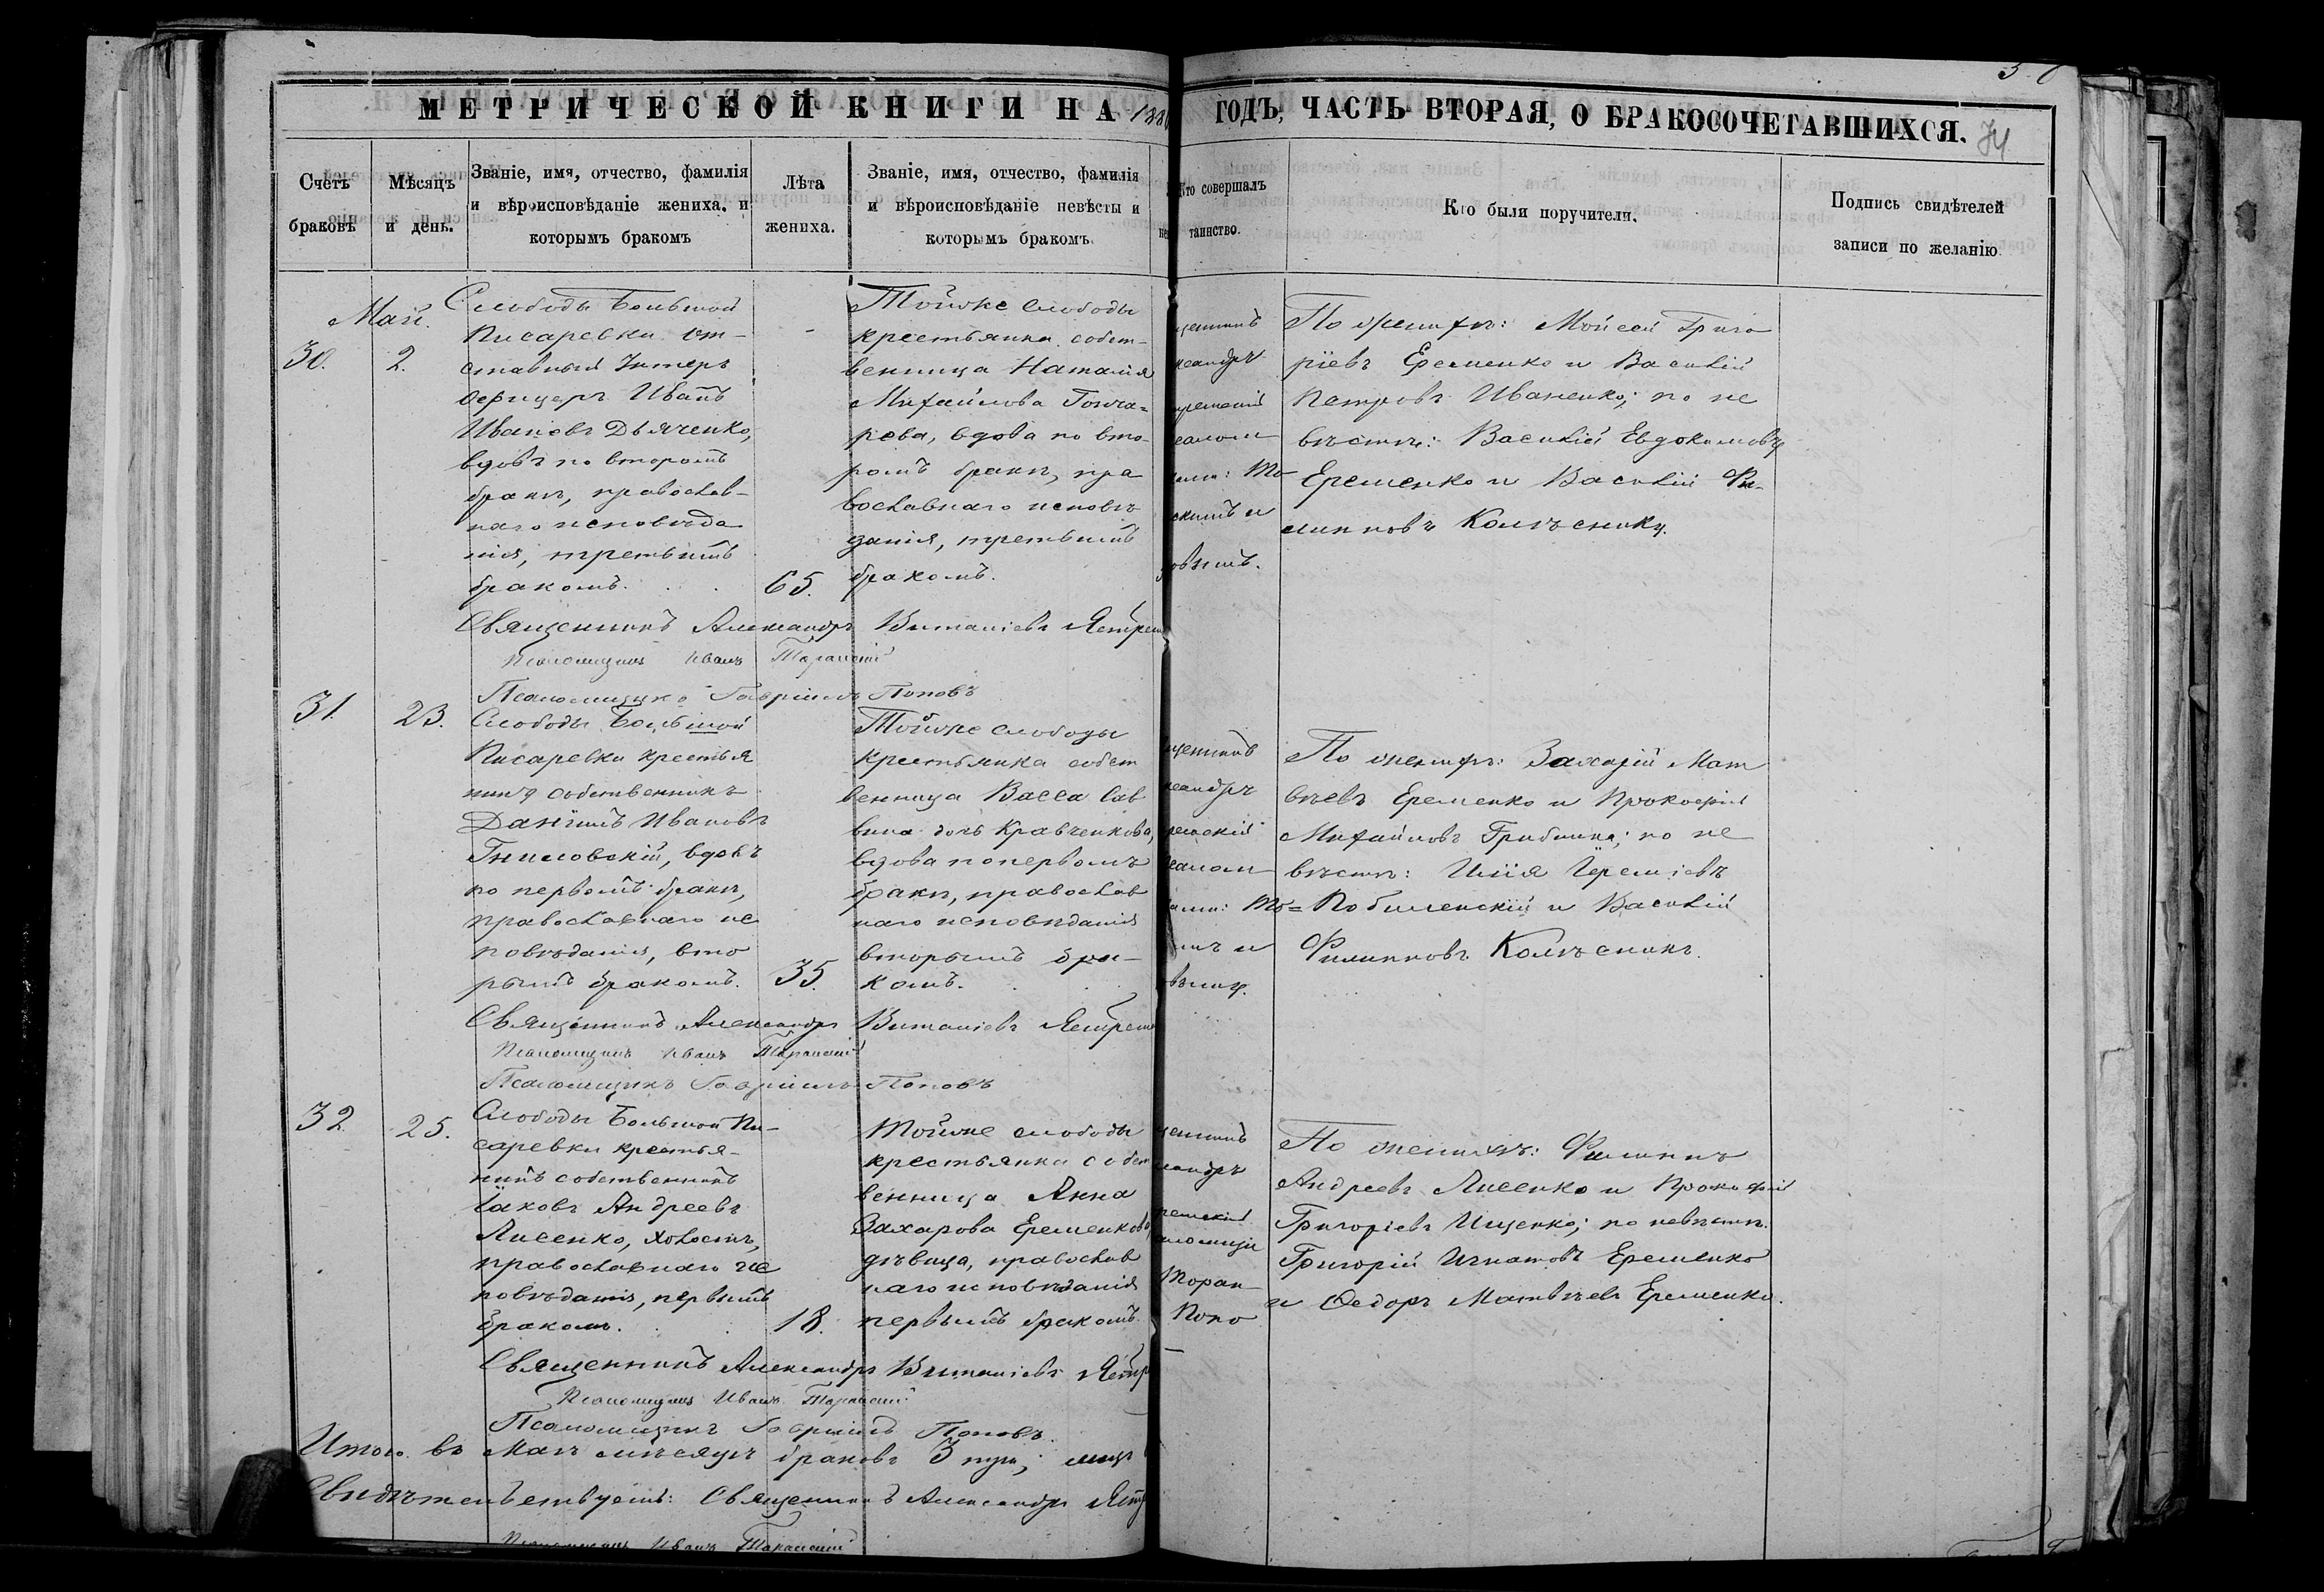 МЕТРИЧЕСКОЙ КНИГИ НА 188
ГОДЪ, ЧАСТЬ ВТОРАЯ, О БРАКОСОЧЕТАВШИХСЯ.
74
Счетъ браковъ
Мѣсяцъ и день.
Званіе, имя, отчество, фамилія
и вѣроисповѣданіе жениха, и
которымъ бракомъ
Лѣта
жениха.
Званіе, имя, отчество, фамилія
и вѣроисповѣданіе невѣсты и
которымъ бракомъ.
Кто совершалъ
таинство.
Кто были поручители.
Подпись свидѣтелей
записи по желанію
Май.
30.
2.
Слободы Большой
Писаревки от-
ставный Унтеръ
Офицеръ Иванъ
Ивановъ Дьяченко,
вдовъ по второмъ
бракѣ, православ-
наго исповѣда
нія, третьимъ
бракомъ.
65.
Тойже слободы
крестьянка собст-
венница Наталія
Михайлова Гонча-
рова, вдова по вто-
ромъ бракѣ, пра
вославнаго исповѣ
данія, третьимъ
бракомъ.
щенникъ
ксандръ
По женихѣ: Моисей Григо
ріевъ Еременко и Василій
Петровъ Иваненко; по не
вѣстѣ: Василій Евдокимовъ
Еременко и Василій Фи-
липповъ Колѣсникъ.
Священникъ Александръ Виталіевъ Ястрем
Псаломщикъ Иванъ Торанскій
Псаломщикъ Гавріилъ Поповъ
31.
23.
Слободы Большой
Писаревки крестья
нинъ собственникъ
Даніилъ Ивановъ
Гниловскій, вдовъ
по первомъ бракѣ,
православнаго ис
повѣданія, вто
рымъ бракомъ.
35.
Тойже слободы
крестьянка собст
венница Васса Сав
вина дочь Кравченкова,
вдова по первомъ
бракѣ, православ
наго исповѣданія
вторымъ бра-
комъ.
щенникъ
ксандръ
По женихѣ: Захарій Мат
вѣевъ Еременко и Прокофій
Михайловъ Грибинка; по не
вѣстѣ: Илія Іереміевъ
Побиленскій и Василій
Филипповъ Колѣсникъ.
Священникъ Александръ Виталіевъ Ястрем
Псаломщикъ Иванъ Торанскій
Псаломщикъ Гавріилъ Поповъ
32.
25.
Слободы Большой Пи-
саревки крестья-
нинъ собственникъ
Іаковъ Андреевъ
Лисенко, холостъ,
православнаго ис
повѣданія, первымъ
бракомъ.
18.
Тойже слободы
крестьянка собст
венница Анна
Захарова Еременкова
дѣвица, православ
наго исповѣданія
первымъ бракомъ.
щенникъ
сандръ
ремскій
аломщи
Торан
Попо
По женихѣ: Филиппъ
Андреевъ Лисенко и Прокофій
Григоріевъ Ищенко; по невѣстѣ:
Григорій Игнатовъ Еременко
и Ѳедоръ Матвѣевъ Еременко.
Священникъ Александръ Виталіевъ Ястр
Псаломщикъ Иванъ Торанскій
Псаломщикъ Гавріилъ Поповъ.
Итого въ маѣ мѣсяцѣ браковъ 3 три; лицъ
Свидѣтельствуетъ: Священникъ Александръ Яст
Псаломщикъ Иванъ Торанскій